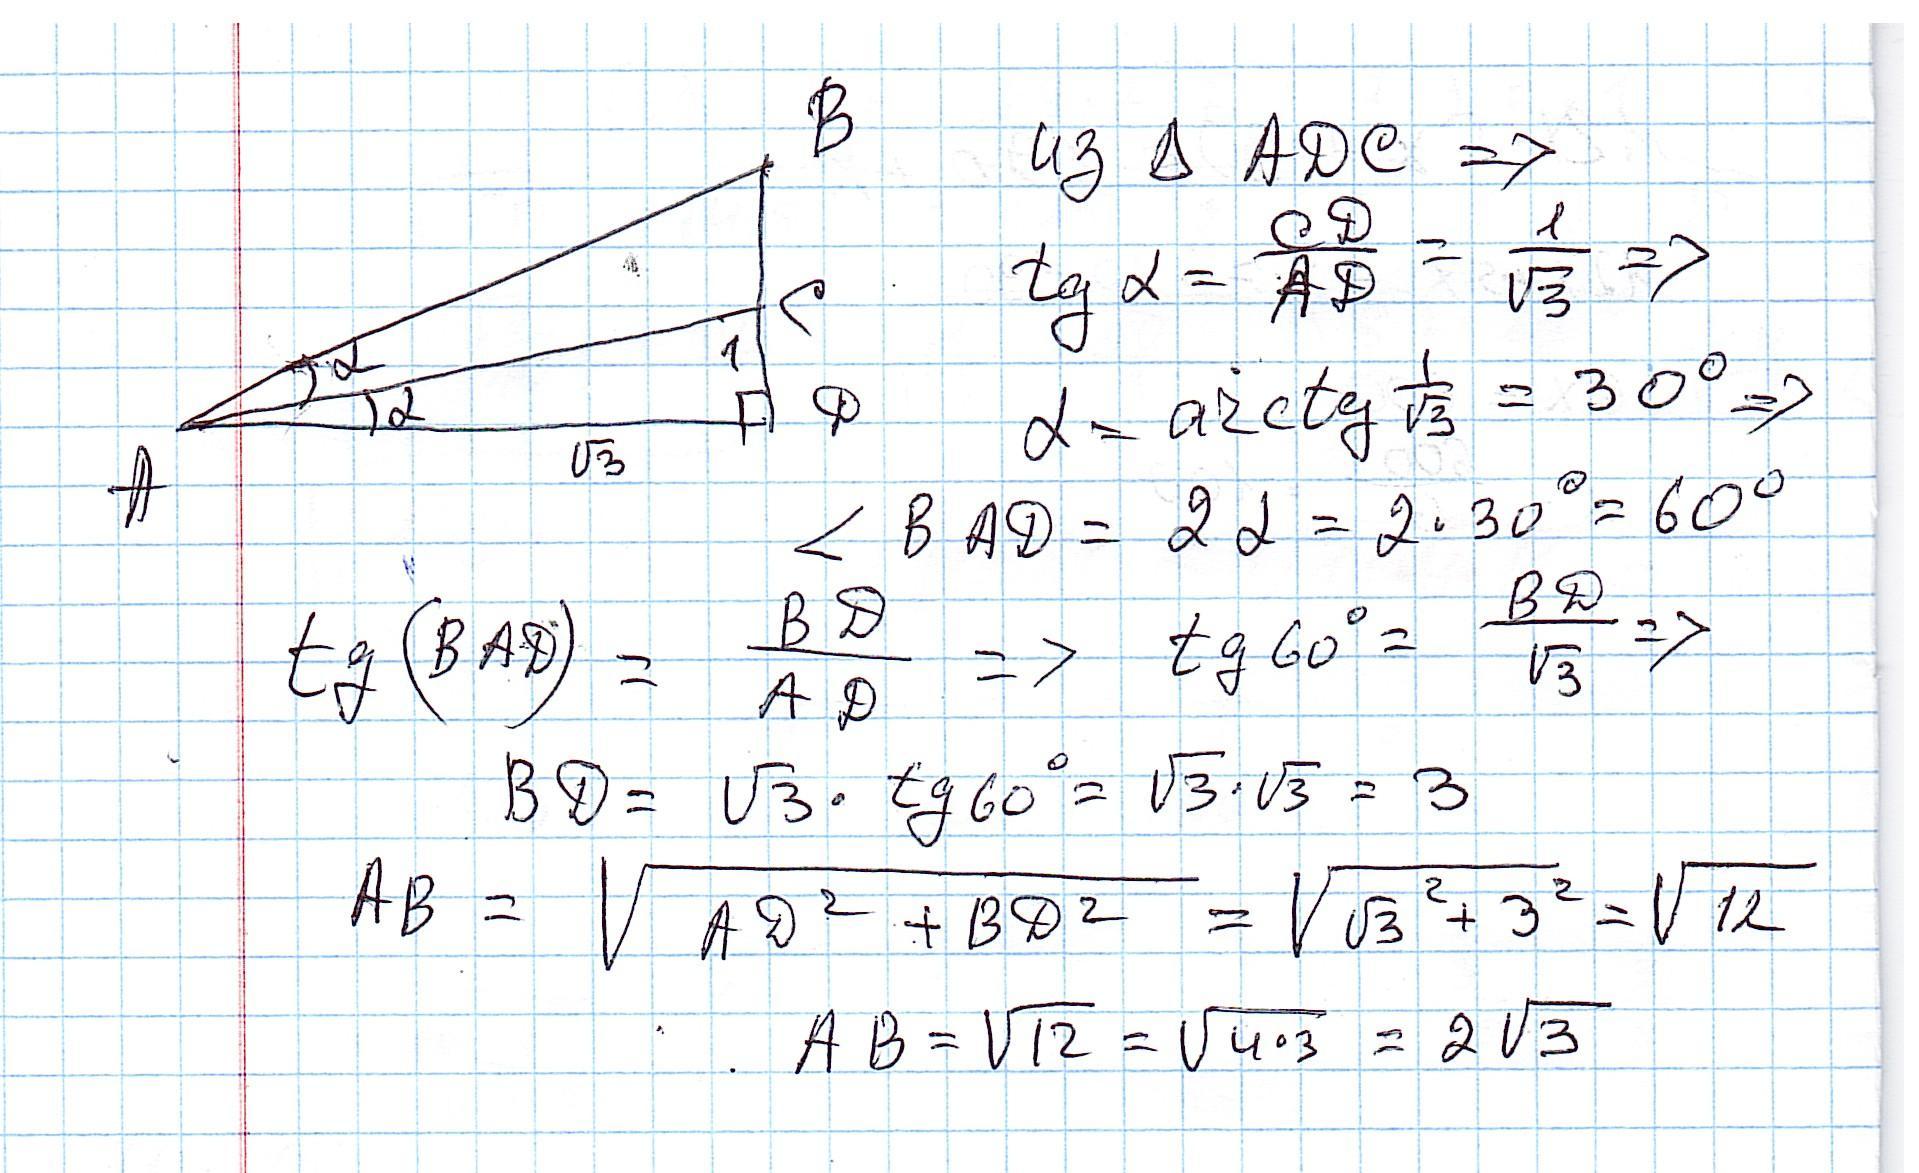 B
C
1
α
α
D
√3
A
из Δ ADC =>
tg α = CD/AD = 1/√3 =>
α = arctg 1/√3 = 30° =>
∠ BAD = 2α = 2·30° = 60°
tg (BAD) = BD/AD => tg 60° = BD/√3 =>
BD = √3 · tg 60° = √3·√3 = 3
AB = √(AD² + BD²) = √(√3² + 3²) = √12
AB = √12 = √(4·3) = 2√3